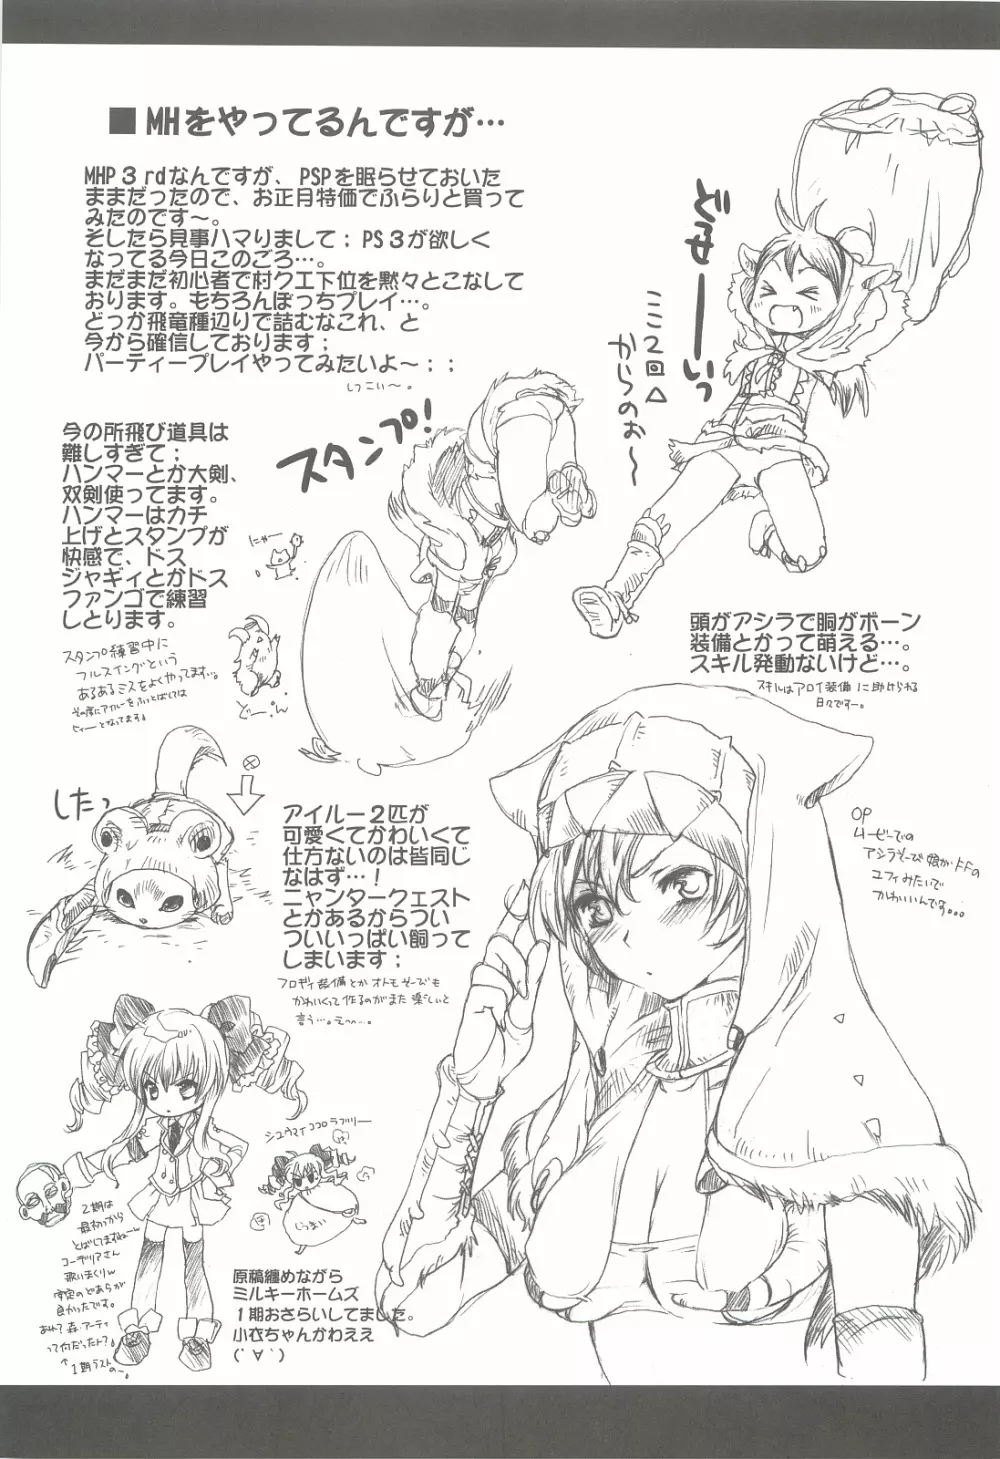 ■MHをやってるんですが…
MHP3rdなんですが、PSPを眠らせておいた
ままだったので、お正月特価でふらりと買って
みたのです～。
そしたら見事ハマりまして；PS3が欲しく
なってる今日このごろ…。
まだまだ初心者で村クエ下位を黙々とこなして
おります。もちろんぼっちプレイ…。
どっか飛竜種辺りで詰むなこれ、と
今から確信しております；
パーティープレイやってみたいよ～；；
しつこい～。
どせーーいっ
ここ2回△
からのぉ～
スタンプ!
今の所飛び道具は
難しすぎて；
ハンマーとか大剣、
双剣使ってます。
ハンマーはカチ
上げとスタンプが
快感で、ドス
ジャギィとかドス
ファンゴで練習
しとります。
スタンプ練習中に
フルスイングという
あるあるミスをよくやってます。
にゃー
どー。ん
頭がアシラで胴がボーン
装備とかって萌える…。
スキル発動ないけど…。
スキルはアロイ装備に助けられる
日々ですー。
したっ
アイルー2匹が
可愛くてかわいくて
仕方ないのは皆同じ
なはず…！
ニャンタークエスト
とかあるからつい
ついいっぱい飼って
しまいます；
フロギィ装備とかオトモそーびも
かわいくって作るのがまた楽しいと
言う…。えへへ…。
OP
ムービーでの
アシラそーび娘がFFの
ユフィみたいで
かわいいんです。。。
シュウマイココロラブリー
しうまい
2期は
最初っから
とばしてますねーw
コーデリアさん
歌いまくりw
安定のどあらが
良かったです。
あれ?森・アーティ
って何だったん?
↑1期ラストのー。
原稿纏めながら
ミルキーホームズ
1期おさらいしてました。
小衣ちゃんかわええ
(.∀`.)